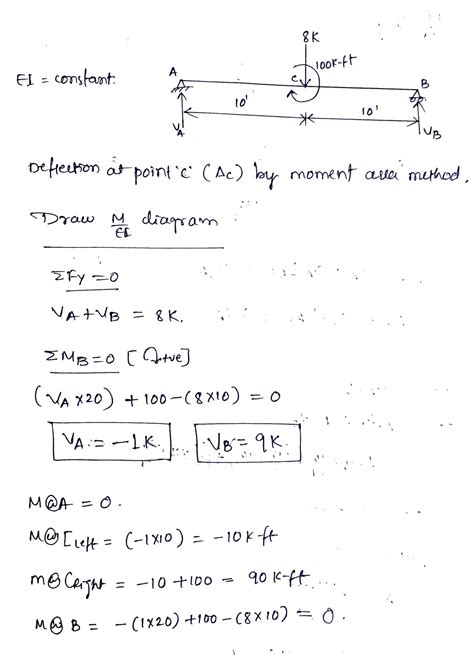 8K
100K-ft
EI = constant.
A
C
B
10'
10'
VA
VB
Deflection at point 'C' (Δc) by moment area method.
Draw M/EI diagram
ΣFy = 0
VA + VB = 8K.
ΣMB = 0 [↻+ve]
(VA × 20) + 100 - (8×10) = 0
VA = -1K. VB = 9K.
M@A = 0.
M@C left = (-1×10) = -10K-ft
M@C right = -10 + 100 = 90 K-ft
M@B = -(1×20) + 100 - (8×10) = 0.